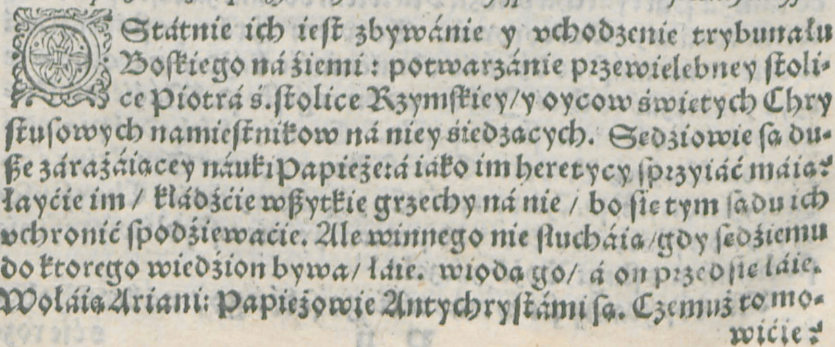 OStátnie ich iest zbywánie y vchodzenie trybunału
Boskiego ná źiemi: potwarzánie przewielebney stoli-
ce Piotrá ś. stolice Rzymskiey/ y oycow świetych Chry
stusowych namiestnikow ná niey śiedzacych. Sedziowie sa du-
ße záráżáiacey náuki Papieżerá iáko im heretycy sprzyiáć máia?
łayćie im / kłádźćie wßytkie grzechy ná nie / bo sie tym sadu ich
vchronić spodźiewaćie. Ale winnego nie słucháia/ gdy sedźiemu
do ktorego wiedźion bywa/ łáie. wioda go/ á on przed sie łáie.
Wołáia Ariani: Papieżowie Antychrystámi sa. Czemuż to mo-
wićie?